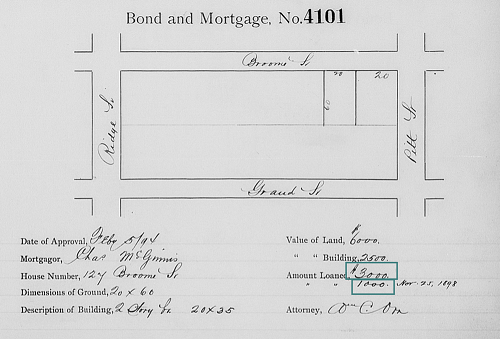 Bond and Mortgage, No. 4101
Broome St
20
20
60
Ridge St
Pitt St
Grand St
Date of Approval, Feby 5/94
Mortgagor, Chas McGinnis
House Number, 127 Broome St
Dimensions of Ground, 20 x 60
Description of Building, 2 Story br 20 x 35
Value of Land, $6000.
" " Building, 2500.
Amount Loaned, $3000.
" " 1000. Nov. 25, 1898
Attorney, Wm C. Orr